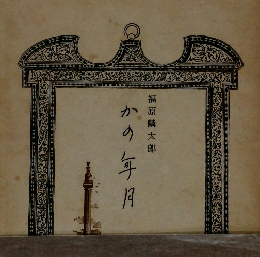 福原麟太郎
かの年月